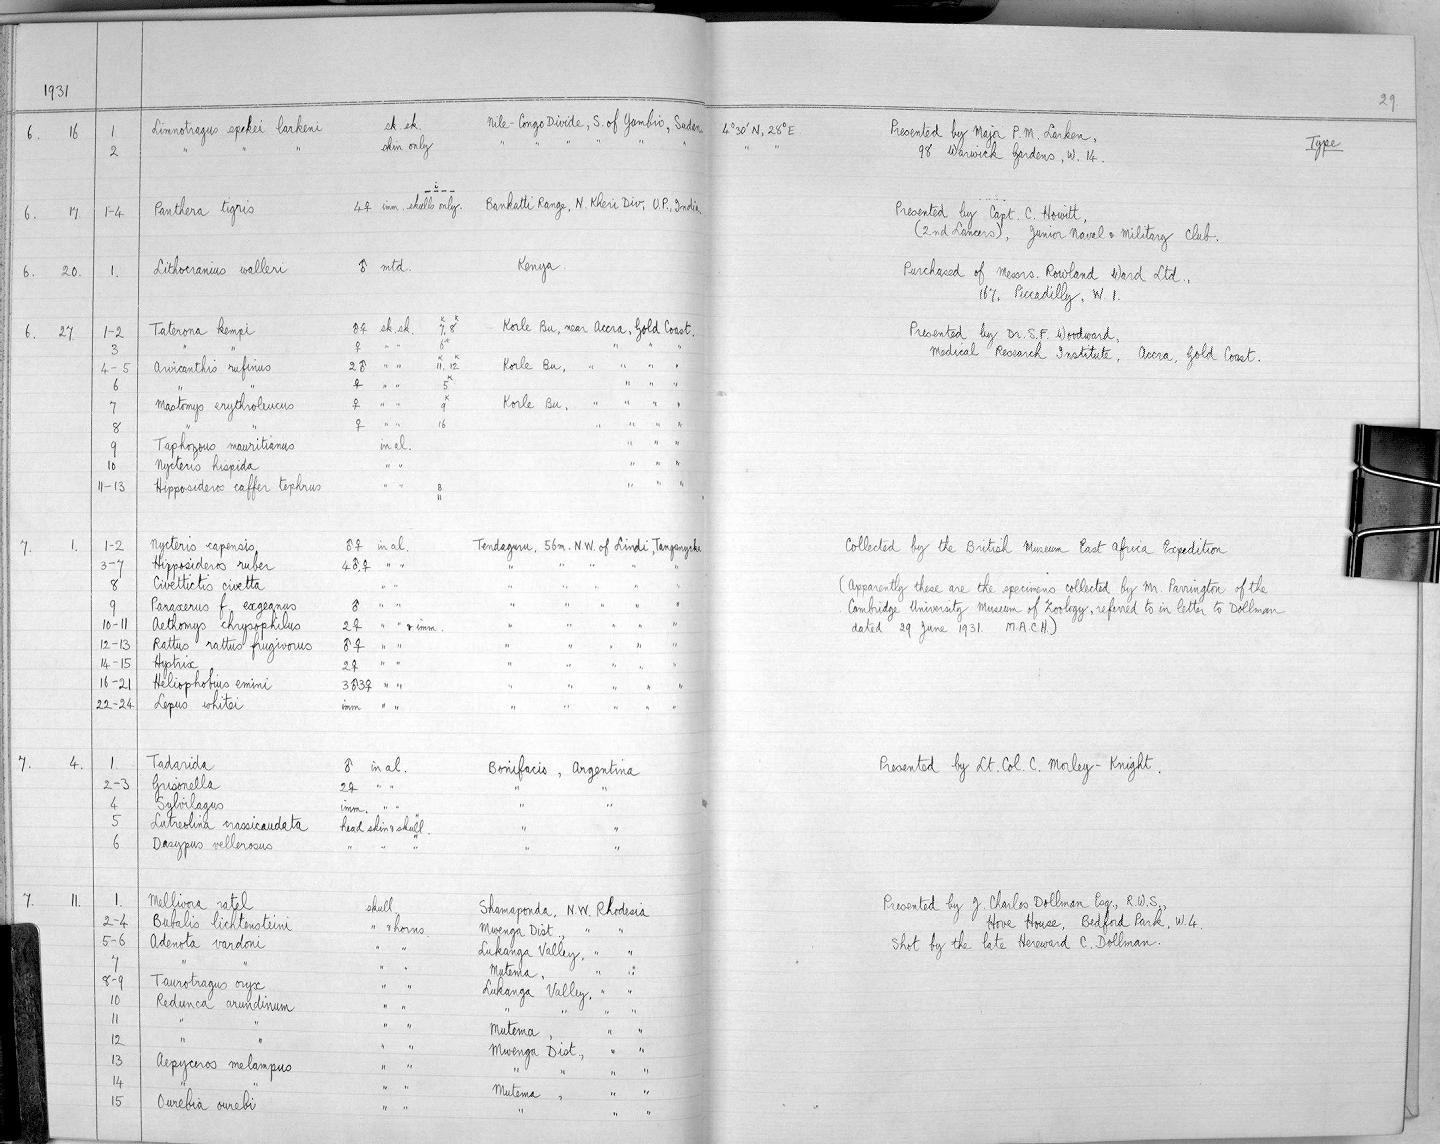 1931
29
6. 16 1 Limnotragus spekei larkeni sk. sk. Nile-Congo Divide, S. of Yambio, Sudan 4°30'N, 28°E Presented by Major P.M. Larken, Type
2 " " " skin only " " " " " " " " 98 Warwick Gardens, W. 14.
6. 17 1-4 Panthera tigris 4♀ imm. skulls only. Bankatti Range, N. Kheri Div, U.P., India. Presented by Capt. C. Howitt,
(2nd Lancers), Junior Naval & Military Club.
6. 20. 1. Lithocranius walleri ♂ mtd. Kenya. Purchased of Messrs. Rowland Ward Ltd.,
167, Piccadilly, W. 1.
6. 27. 1-2 Taterona kempi ♂♀ sk. sk. 7, 8 Korle Bu, near Accra, Gold Coast. Presented by Dr. S.F. Woodward,
3 " " ♀ " " 6 " " " Medical Research Institute, Accra, Gold Coast.
4-5 Arvicanthis rufinus 2♂ " " 11, 12 Korle Bu, " " " "
6 " " ♀ " " 5 " " "
7 Mastomys erythroleucus ♀ " " 9 Korle Bu, " " " "
8 " " ♀ " " 16 " " " "
9 Taphozous mauritianus in al. " " "
10 Nycteris hispida " " " " "
11-13 Hipposideros caffer tephrus " " 8 " " "
11
7. 1. 1-2 Nycteris capensis ♂♀ in al. Tendaguru, 56m. N.W. of Lindi, Tanganyika Collected by the British Museum East Africa Expedition
3-7 Hipposideros ruber 4♂,♀ " " " " " " "
8 Civettictis civetta " " " " " " " (Apparently these are the specimens collected by Mr. Parrington of the
9 Paraxerus f. exgeanus ♂ " " " " " " " Cambridge University Museum of Zoology, referred to in letter to Dollman
10-11 Aethomys chrysophilus 2♀ " " & imm. " " " " " dated 29 June 1931. M.A.C.H.)
12-13 Rattus rattus frugivorus ♂♀ " " " " " " "
14-15 Hystrix 2♀ " " " " " " "
16-21 Heliophobius emini 3♂3♀ " " " " " " "
22-24 Lepus whitei imm " " " " " " "
7. 4. 1. Tadarida ♂ in al. Bonifacio, Argentina Presented by Lt. Col. C. Morley-Knight.
2-3 Grisonella 2♀ " " " "
4 Sylvilagus imm. " " " "
5 Lutreolina crassicaudata head skin & skull. " "
6 Dasypus vellerosus " " " " "
7. 11. 1. Mellivora ratel skull Shamaponda, N.W. Rhodesia Presented by J. Charles Dollman Esq., R.W.S.,
2-4 Bubalis lichtensteini " & horns Mwenga Dist., " " Hove House, Bedford Park, W.4.
5-6 Adenota vardoni " " Lukanga Valley, " " Shot by the late Hereward C. Dollman.
7 " " " " Mutema, " "
8-9 Taurotragus oryx " " Lukanga Valley, " "
10 Redunca arundinum " " " " " "
11 " " " " Mutema, " "
12 " " " " Mwenga Dist., " "
13 Aepyceros melampus " " " " " "
14 " " " " Mutema, " "
15 Ourebia ourebi " " " " "